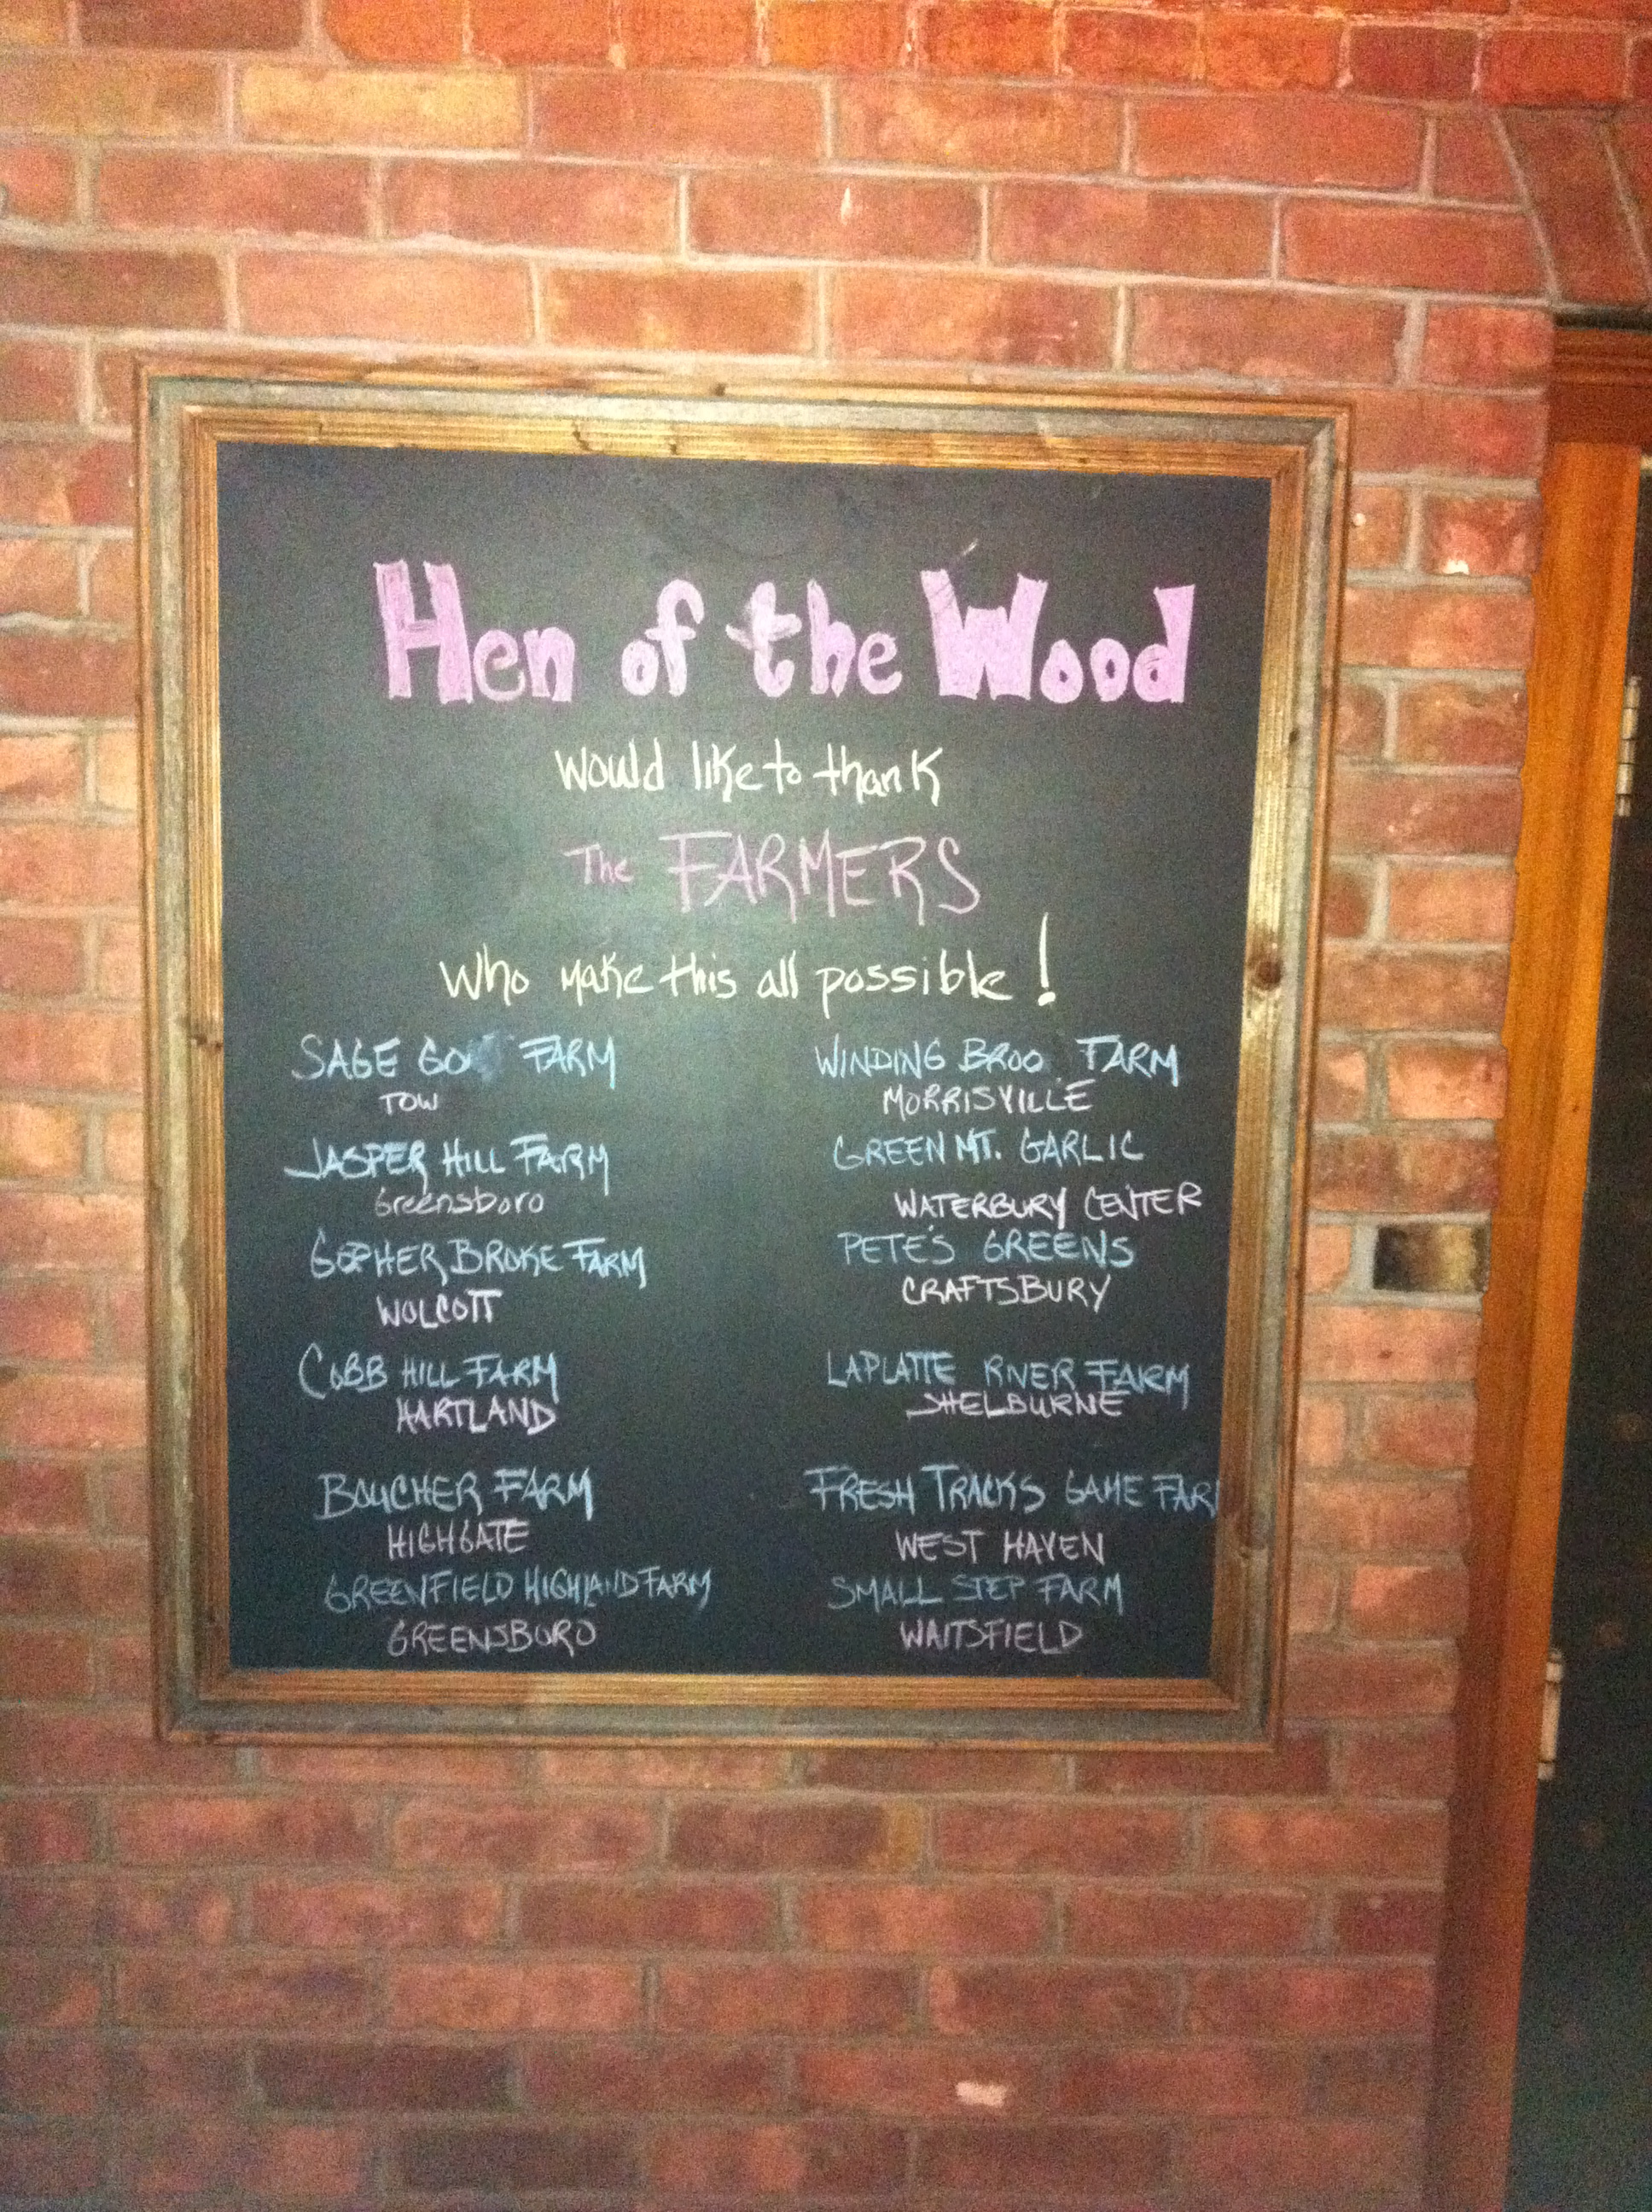 Hen of the Wood
would like to thank
The FARMERS
who make this all possible!
SAGE FARM
TOW
JASPER HILL FARM
Greensboro
GOPHER BROKE FARM
WOLCOTT
COBB HILL FARM
HARTLAND
BOUCHER FARM
HIGHGATE
GREENFIELD HIGHLAND FARM
GREENSBORO
WINDING BROO FARM
MORRISVILLE
GREEN MT. GARLIC
WATERBURY CENTER
PETE'S GREENS
CRAFTSBURY
LAPLATTE RIVER FARM
SHELBURNE
FRESH TRACKS GAME FAR
WEST HAVEN
SMALL STEP FARM
WAITSFIELD